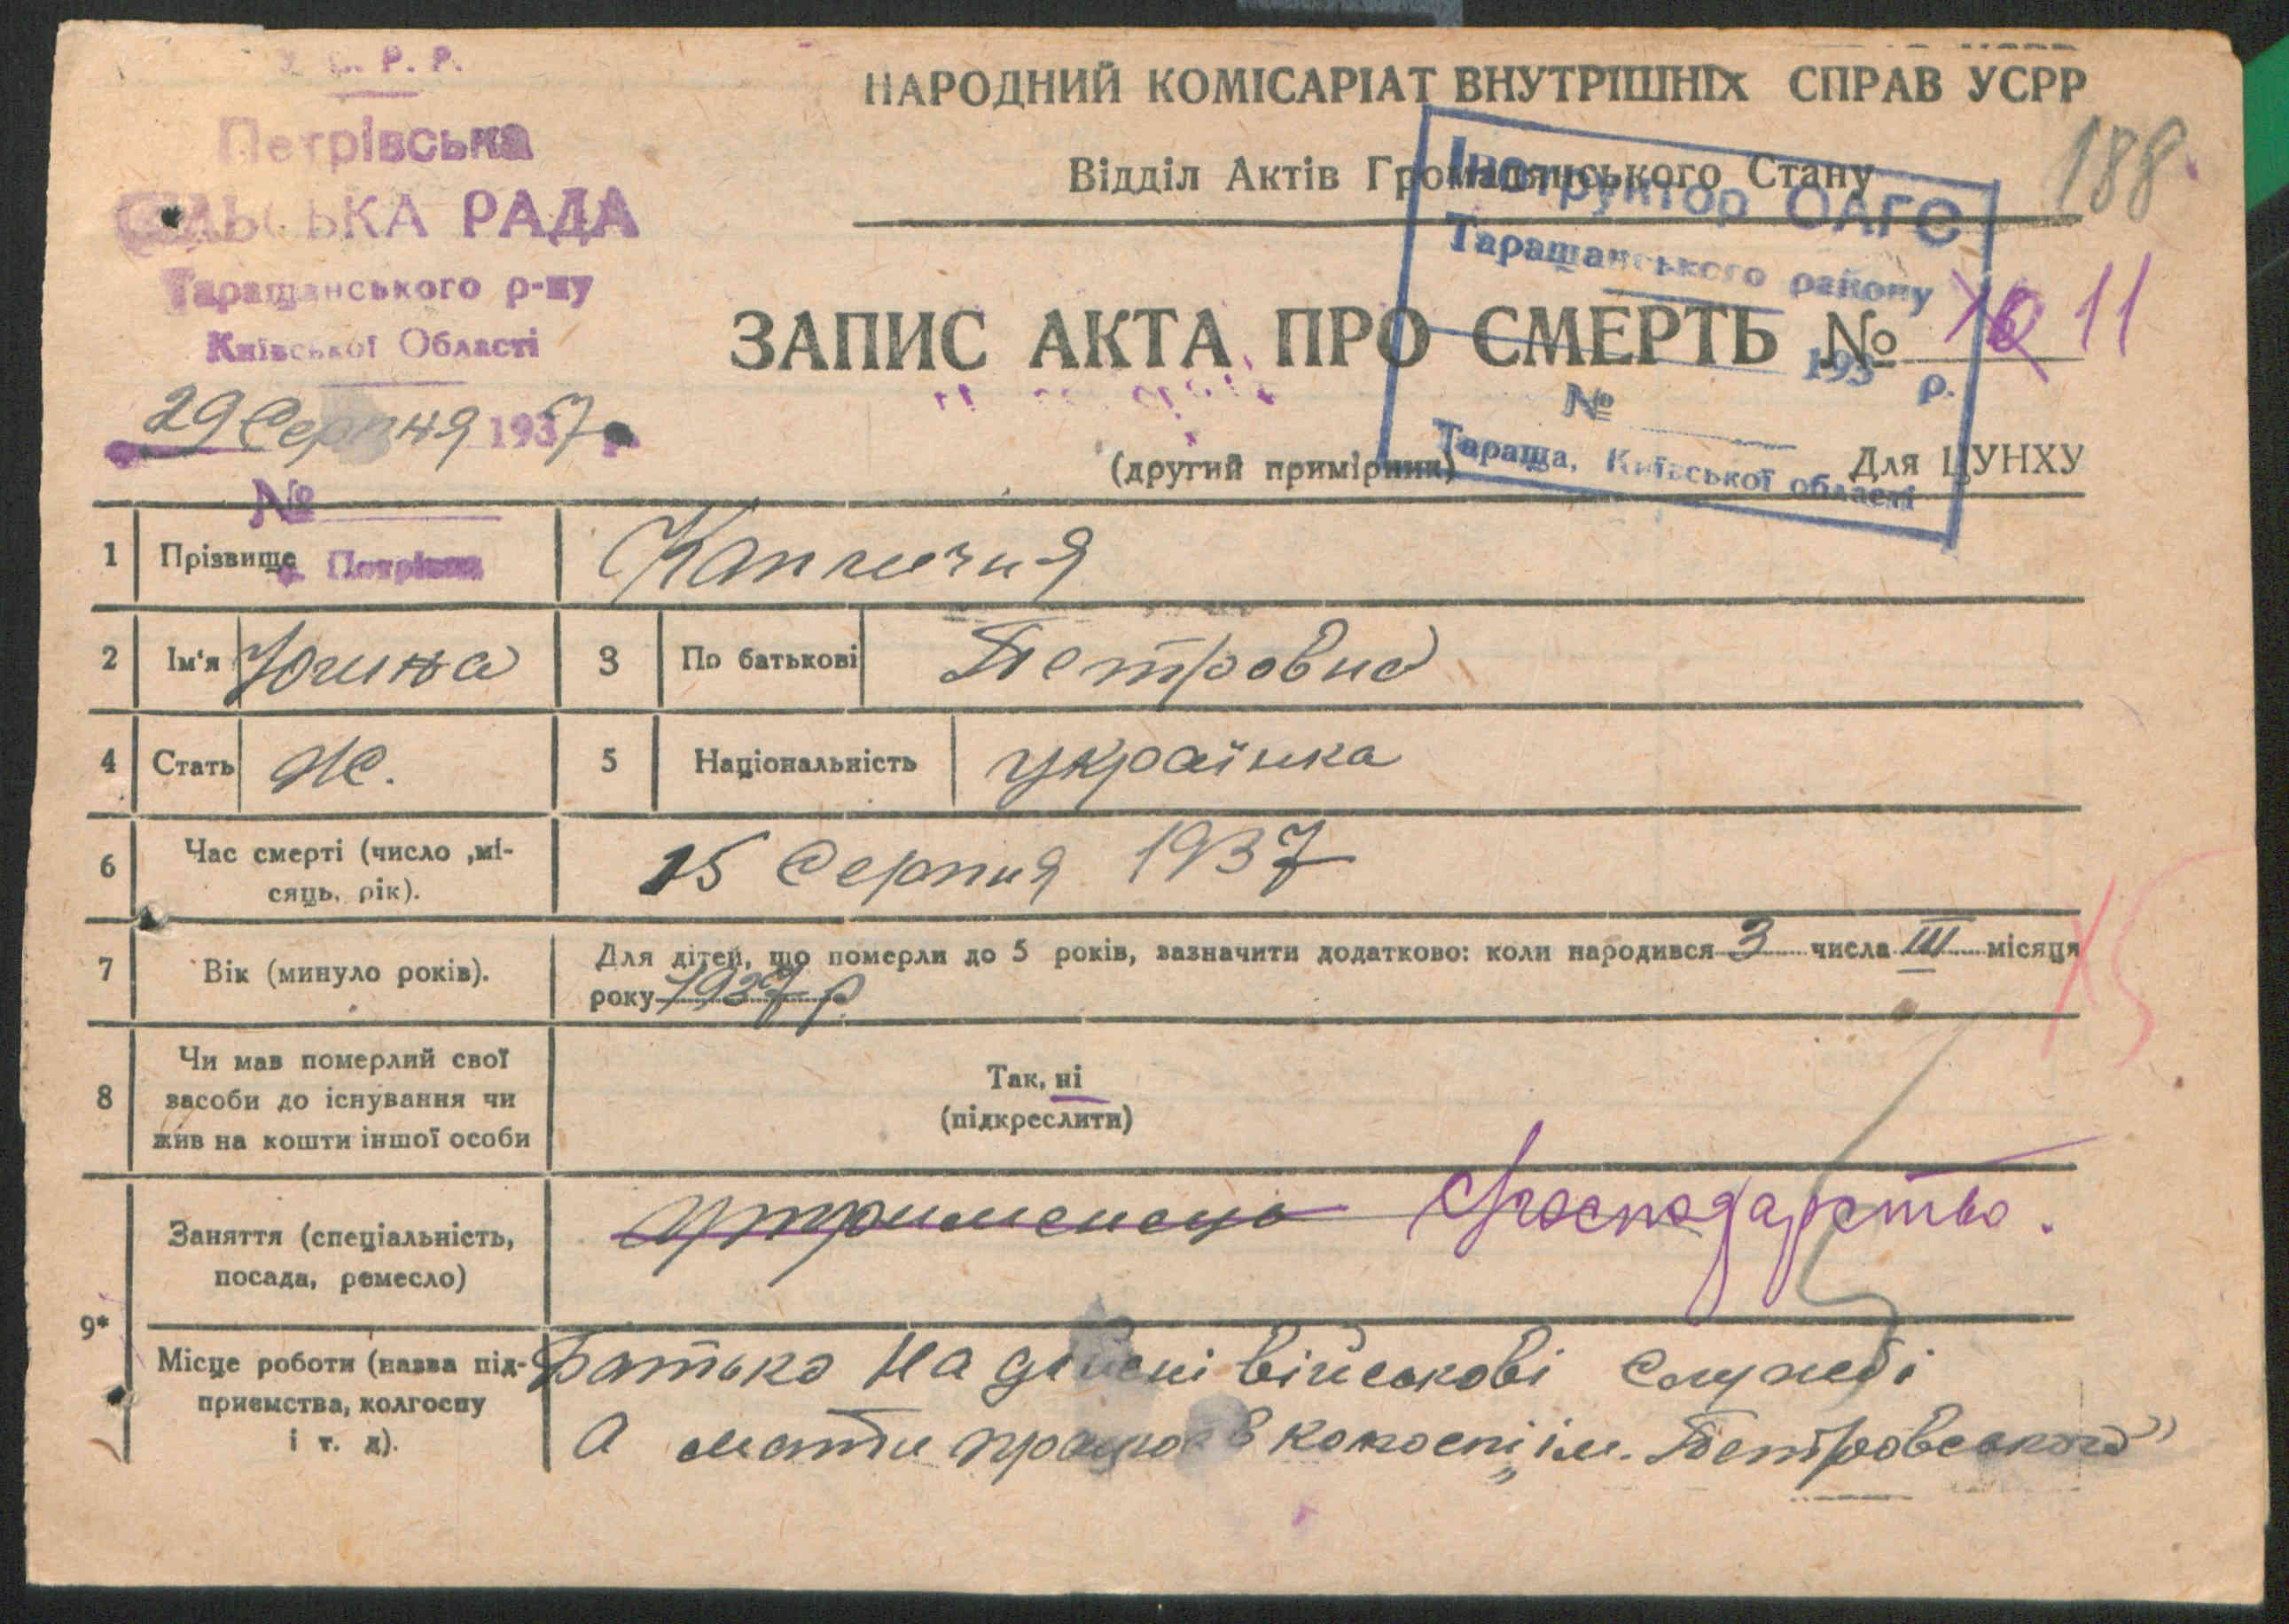 Р. Р.
Петрівська
СІЛЬСЬКА РАДА
Таращанського р-ну
Київської Області
29 Серпня 1937 р
№
с. Петрівка
НАРОДНИЙ КОМІСАРІАТ ВНУТРІШНІХ СПРАВ УСРР
Відділ Актів Громадянського Стану
188
Інструктор ОАГС
Таращанського району
193 р.
№
Тараща, Київської області
ЗАПИС АКТА ПРО СМЕРТЬ № 11
(другий примірник)
Для ЦУНХУ
1 Прізвище
2 Ім'я Югина 3 По батькові Петровна
4 Стать Ж. 5 Національність українка
6 Час смерті (число ,мі-
сяць, рік).
15 Серпня 1937
7 Вік (минуло років).
Для дітей, що померли до 5 років, зазначити додатково: коли народився 3 числа III місяця
року 1937 р.
8 Чи мав померлий свої
засоби до існування чи
жив на кошти іншої особи
Так, ні
(підкреслити)
9* Заняття (спеціальність,
посада, ремесло)
утриманець господарство.
Місце роботи (назва під-
приємства, колгоспу
і т. д).
Батько на дійсні військові службі
а мати працює в колгоспі „ім. Петровського"